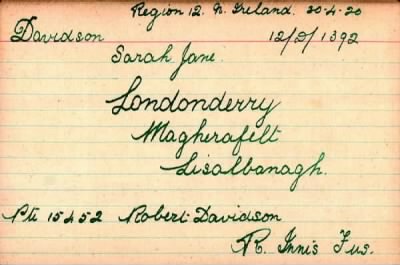 Region 12. N. Ireland. 30-4-20
Davidson 12/D/1392
Sarah Jane.
Londonderry
Magherafelt
Lisalbanagh.
Pte 15452 Robert Davidson
R. Innis Fus.